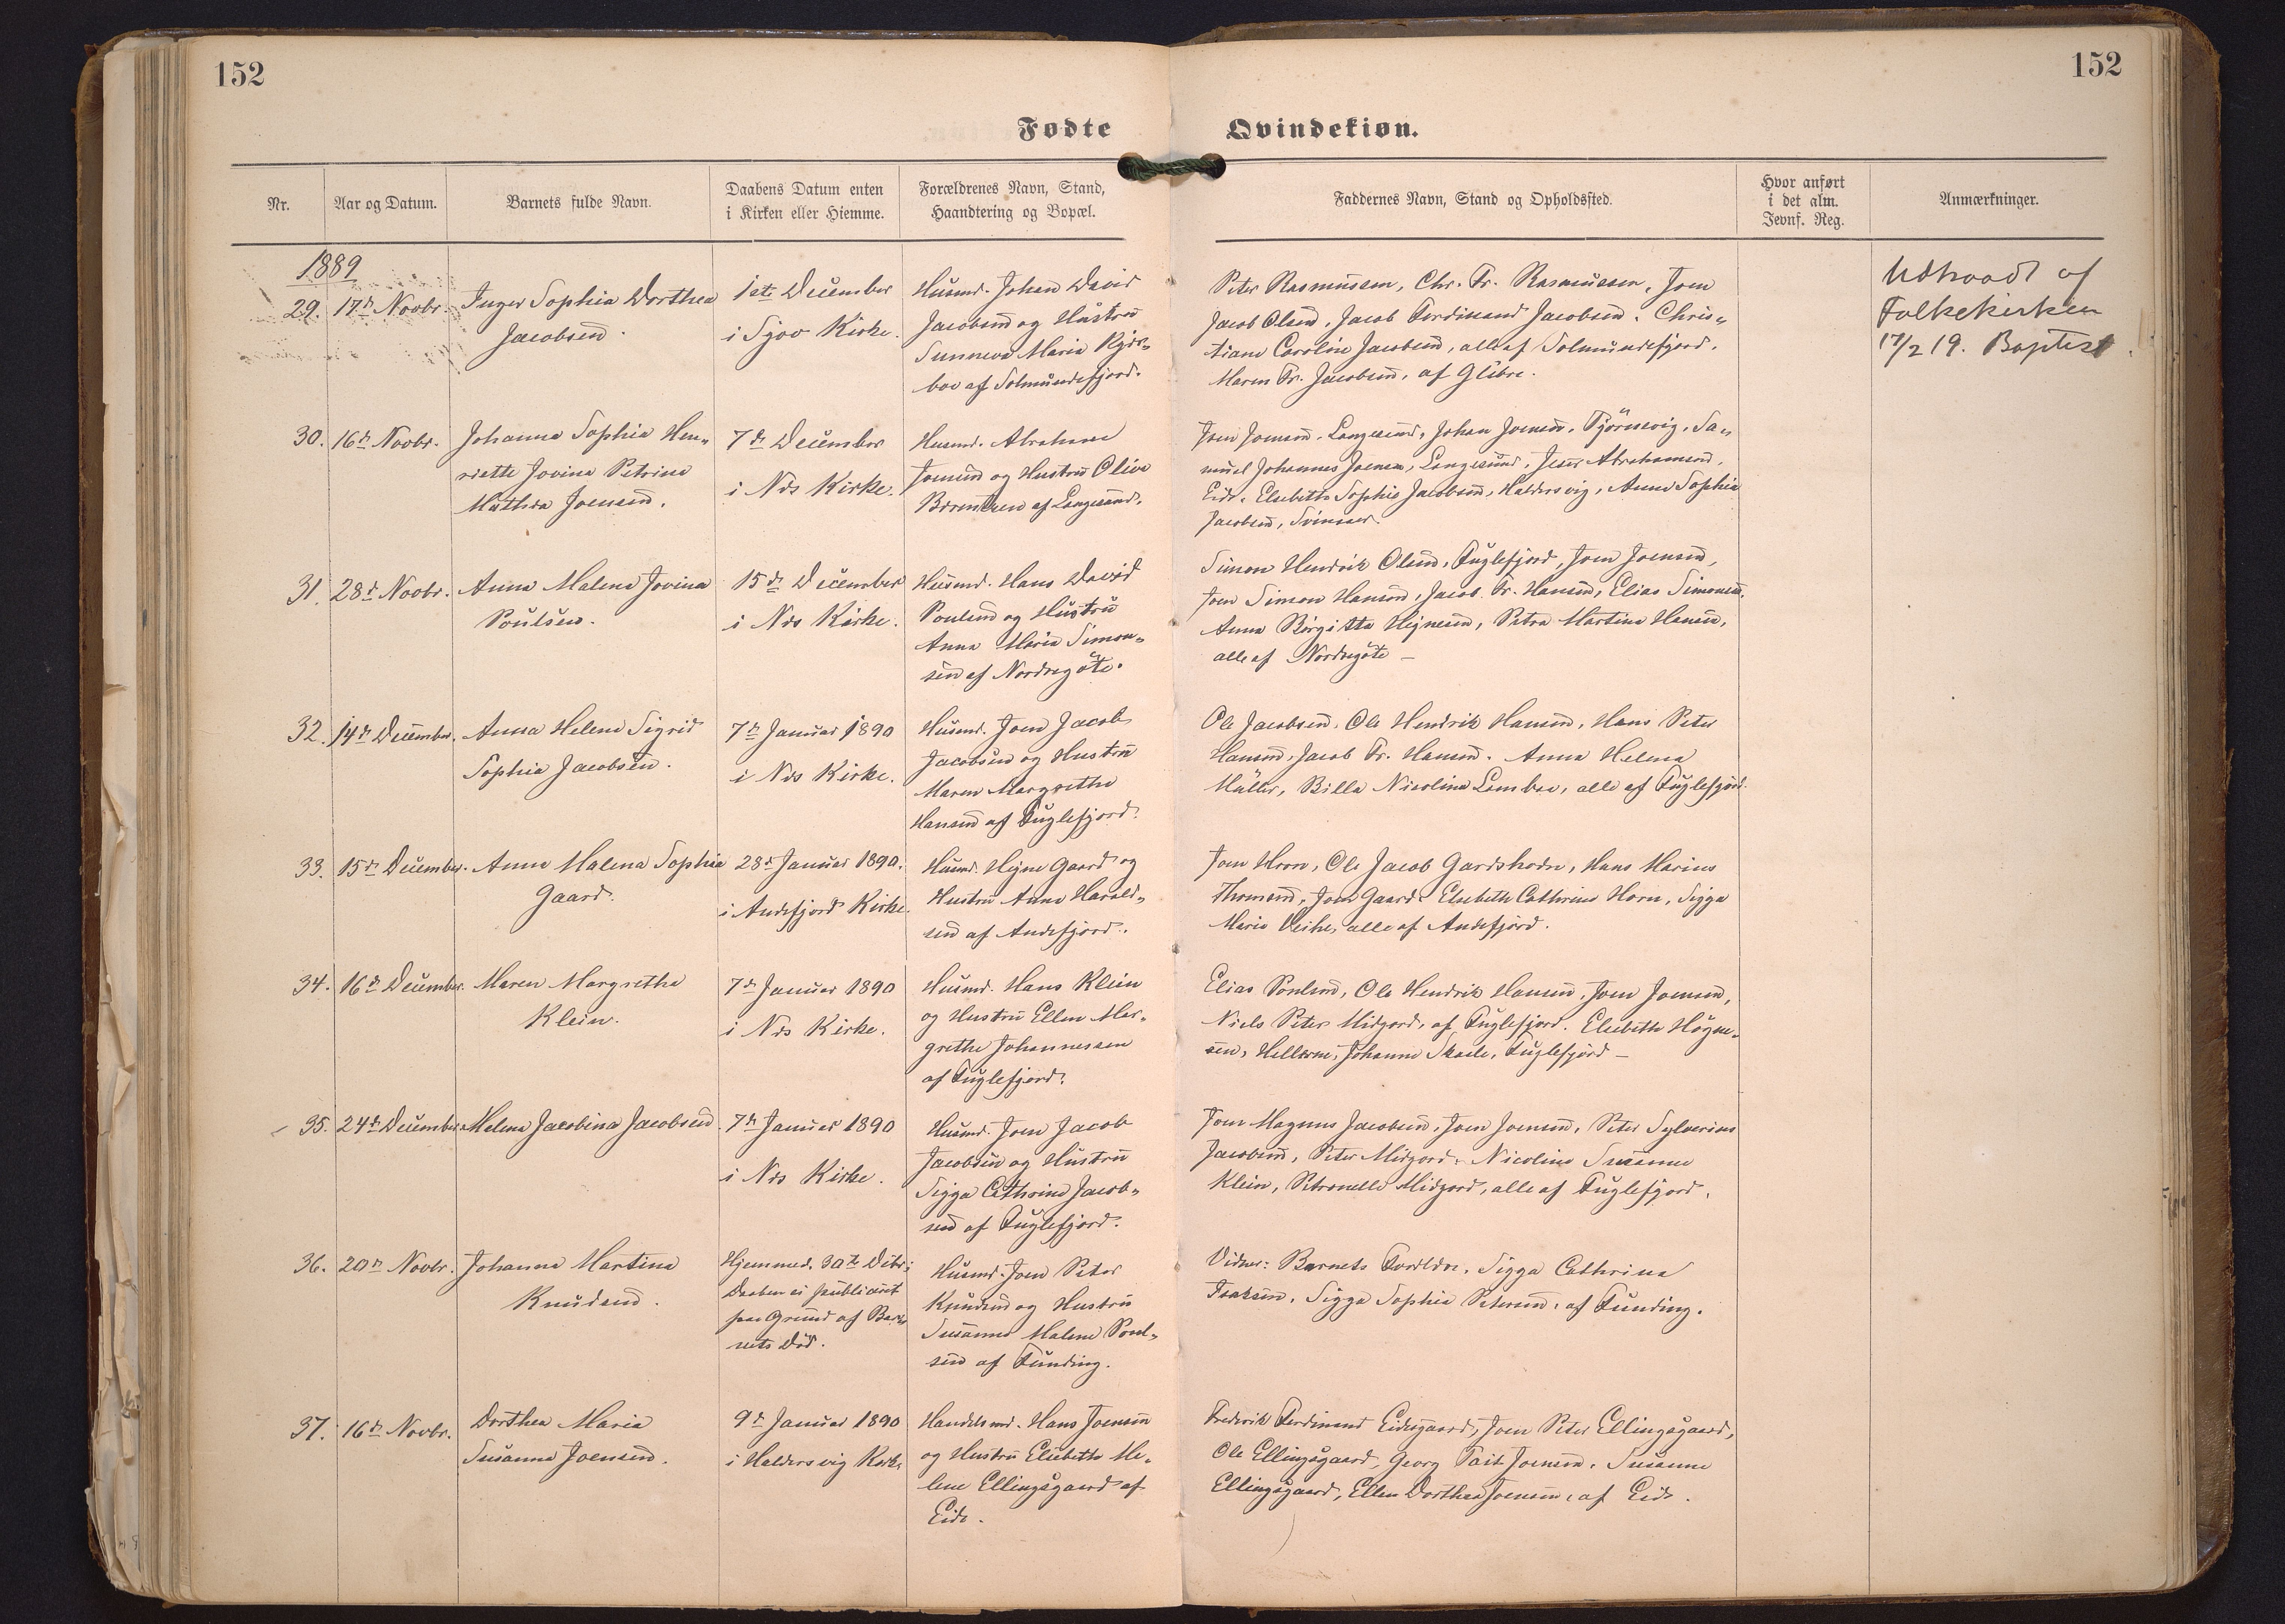 152
152
Fødte
Qvindekiøn.
Nr.
Aar og Datum.
Barnets fulde Navn.
Daabens Datum enten
i Kirken eller Hiemme.
Forældrenes Navn, Stand,
Haandtering og Bopæl.
Faddernes Navn, Stand og Opholdssted.
Hvor anført
i det alm.
Jevnf. Reg.
Anmærkninger.
1889
29.
17de Novbr.
Inger Sophia Dorthea
Jacobsen.
1ste December
i Sjov Kirke.
Husmd. Johan David
Jacobsen og Hustru
Sunneva Maria Kjær-
boe af Solmundefjord.
Peter Rasmussen, Chr. Fr. Rasmussen, Joen
Jacob Olsen, Jacob Ferdinand Jacobsen. Chris-
tiane Caroline Jacobsen, alle af Solmundefjord.
Maren Fr. Jacobsen, af Glibre.
Udtraadt af
Folkekirken
17/2 19. Baptist.
30.
16de Novbr.
Johanna Sophia Hen-
riette Jovina Petrina
Mathea Joensen.
7de December
i Nds Kirke.
Husmd. Abraham
Joensen og Hustru Oliva
Berentsen af Langesand.
Joen Joensen, Langesand, Johan Joensen, Tjörnevig, Sa-
muel Johannes Joensen, Langesand, Abrahamsen,
Eide, Elsebeth Sophie Jacobsen, Haldersvig, Anna Sophia
Jacobsen, Svinaaer.
31.
28de Novbr.
Anna Malena Jovina
Poulsen.
15de December
i Nds Kirke.
Husmd. Hans David
Poulsen og Hustru
Anna Maria Simon-
sen af Nordregöte.
Simon Hendrik Olsen, Fuglefjord, Joen Joensen,
Joen Simon Hansen, Jacob Fr. Hansen, Elias Simonsen,
Anna Birgitta Hejnesen, Petra Martina Hansen,
alle af Nordregöte —
32.
14de December.
Anna Helena Sigrid
Sophia Jacobsen.
7de Januar 1890
i Nds Kirke.
Husmd. Joen Jacob
Jacobsen og Hustru
Maren Margrethe
Hansen af Fuglefjord.
Ole Jacobsen, Ole Hendrik Hansen, Hans Peter
Hansen, Jacob Fr. Hansen. Anna Helena
Müller, Billa Nicolina Lambae, alle af Fuglefjord.
33.
15de December.
Anna Malena Sophia
Gaard.
28de Januar 1890.
i Andefjord Kirke.
Husmd. Hejne Gaard og
Hustru Anna Harald-
sen af Andefjord.
Joen Horn, Ole Jacob Gardshodn, Hans Marius
Thomsen, Joen Gaard. Elsebeth Cathrine Horn, Sigga
Maria Veihe, alle af Andefjord.
34.
16de December.
Maren Margretha
Klein.
7de Januar 1890
i Nds Kirke.
Husmd. Hans Klein
og Hustru Ellen Mar-
grethe Johannessen
af Fuglefjord.
Elias Poulsen, Ole Hendrik Hansen, Joen Joensen,
Niels Peter Midgord, af Fuglefjord. Elsebeth Högne-
sen, Hellerne, Johanne Skaale, Fuglefjord —
35.
24de December.
Helena Jacobina Jacobsen.
7de Januar 1890
i Nds Kirke.
Husmd. Joen Jacob
Jacobsen og Hustru
Sigga Cathrina Jacob-
sen af Fuglefjord.
Joen Magnus Jacobsen, Joen Joensen, Peter Sylverius
Jacobsen, Peter Midgord, Nicoline Susanne
Klein, Petronelle Midgord, alle af Fuglefjord.
36.
20de Novbr.
Johanna Martina
Knudsen.
Hjemmed. 30te Debr:
Daaben ei publiceret
paa Grund af Bar-
nets Död.
Husmd. Joen Peter
Knudsen og Hustru
Susanna Malena Poul-
sen af Funding.
Vidner: Barnets Foreldre, Sigga Cathrina
Isaksen, Sigga Sophia Petersen, af Funding.
37.
16de Novbr.
Dorthea Maria
Susanna Joensen.
9de Januar 1890
i Haldersvig Kirke
Handelsmd. Hans Joensen
og Hustru Elsebeth He-
lene Ellingsgaard af
Eide.
Frederik Ferdinand Eidesgaard, Joen Peter Ellingsgaard,
Ole Ellingsgaard, Georg Tait Joensen, Susanne
Ellingsgaard, Ellen Dorthea Joensen, af Eide.